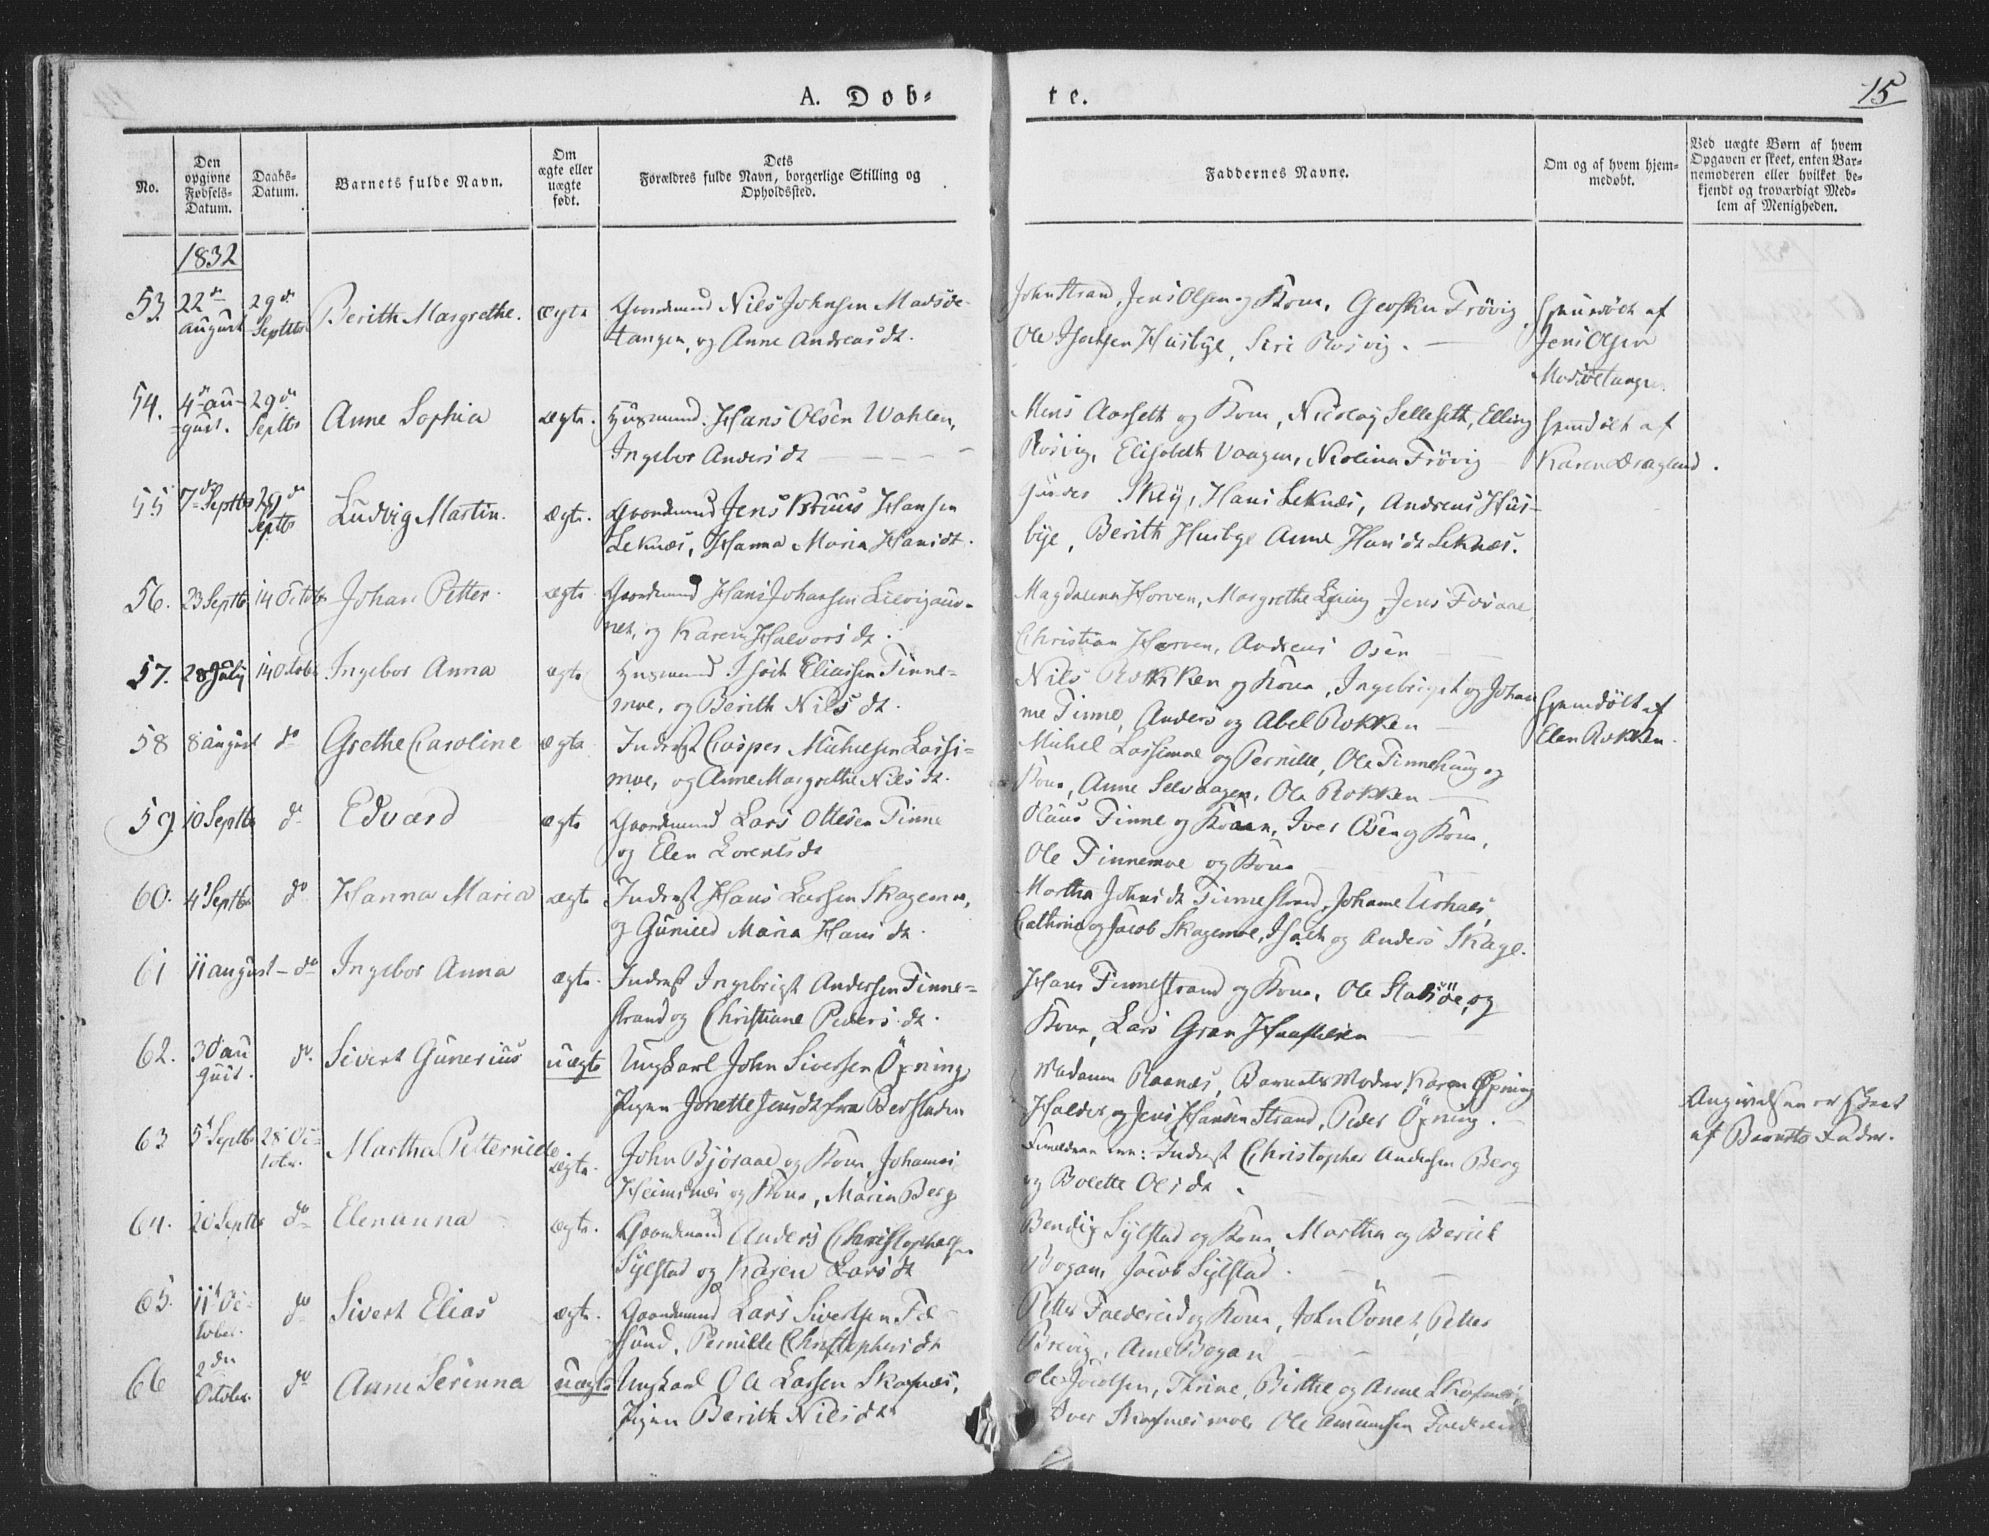 A. Døb-
te.
15
No.
Den opgivne Fødsels-Datum.
Daabs-Datum.
Barnets fulde Navn.
Om ægte eller uægte født.
Dets Forældres fulde Navn, borgerlige Stilling og Opholdssted.
Faddernes Navne.
Om og af hvem hjem-
medøbt.
Ved uægte Børn af hvem
Opgaven er skeet, enten Bar-
nemoderen eller hvilket be-
kjendt og troværdigt Med-
lem af Menigheden.
1832
53. 22de august 29de Septbr Berith Margrethe. ægte Gaardmand Nils Johnsen Madsøe-
tangen, og Anne Andreasdt.
John Strand, Jens Olsen og Kone, Frövig,
Ole Isachsen Husbye, Siri Rosvig.
Hjemdøbt af
Jens Olsen
Madsøetangen.
54. 4de au-
gust. 29de Septbr Anne Sophia ægte. Huusmand Hans Olsen Wahlen,
Ingebor Andersdt
Mons Aarsett og Kone, Nicolay Sellesett, Elling
Rosvig, Elisabeth Vaagen, Nicolina Frövig
Hjemdøbt af
Karen Dragland.
55 7de Septbr 29de Septbr Ludvig Martin. ægte. Gaardmand Jens Bruus Hansen
Leknæs, Hanna Maria Hansdt.
Skey, Hans Leknæs, Andreas Hus-
bye, Berith Husbye Anne Hansdt Leknæs.
56. 23 Septbr 14 October Johan Petter. ægte Gaardmand Hans Johansen
og Karen Halvorsdt.
Magdalena Horven, Margrethe Jens
Christian Horven, Andreas Osen
57. 28 July 14 October Ingebor Anna ægte Huusmand Isach Eliassen Finne-
moe, og Berith Nilsdt.
Nils Rokken og Kone, Ingebrigt og Johan-
ne Finne, Anders og Abel Rokken
Hjemdøbt af
Elen Rokken.
58 8 august do Grethe Caroline ægte Inderst Casper Michelsen Lassi-
moe, og Anne Margrethe Nilsdt.
Michel Lassemoe og Pernille, Ole Finnehaug og
Kone, Anne Selvaagen, Ole Rokken
59. 10 Septbr do Edvard ægte Gaardmand Lars Ottesen Finne
og Elen Lorentsdt
Olaus Finne og Kone, Iver Osen og Kone,
Ole Finnemoe og Kone
60. 4de Septbr do Hanna Maria ægte Inderst Hans Larsen Skagemoe,
og Gunild Maria Hansdt.
Martha Johnsdt Finnestrand, Johanne
Cathrine og Jacob Skagemoe, Isach og Anders Skage.
61 11 august do Ingebor Anna ægte. Inderst Ingebrigt Andersen Finne-
strand og Christiane Pedersdt.
Hans Finnestrand og Kone, Ole og
Kone, Lars Gran
62. 30 au
gust. do. Sivert Gunerius uægte Ungkarl John Siversen Öpning,
Pigen Jonette Jensdt fra Beestaden
Madame Raanæs, Barnets Moder, Karen Öpning
Halder og Jens Hansen Strand, Peder Öpning.
Angivelsen er skeet
af Barnets Fader.
63 5t Septbr 28 Oc-
tober. Martha Petternille ægte. John Björaae og Kone, Johannes
Heimsnæs og Kone, Maria Berg
Forældrene ere: Inderst Christopher Andersen Berg
og Bolette Olsdt.
64. 20 Septbr do Elenanna ægte. Gaardmand Anders Christophersen
Sylstad og Karen Larsdt
Bendix Sylstad og Kone Martha og Berith
Bogan, Jacob Sylstad.
65. 11t Oc-
tober. do Sivert Elias ægte. Gaardmand Lars Sivertsen Fæ-
sund, Pernille Christophersdt
Petter Foldereid og Kone, John Övnet, Petter
Brevig, Arne Bogan
66 2den October. do Anne Serinna uægte Ungkarl Ole Larsen Skafnæs,
Pigen Berith Nilsdt
Ole Jacobsen, Thrine, Birthe og Anne
Iver Skafnæs moe Ole Amundsen